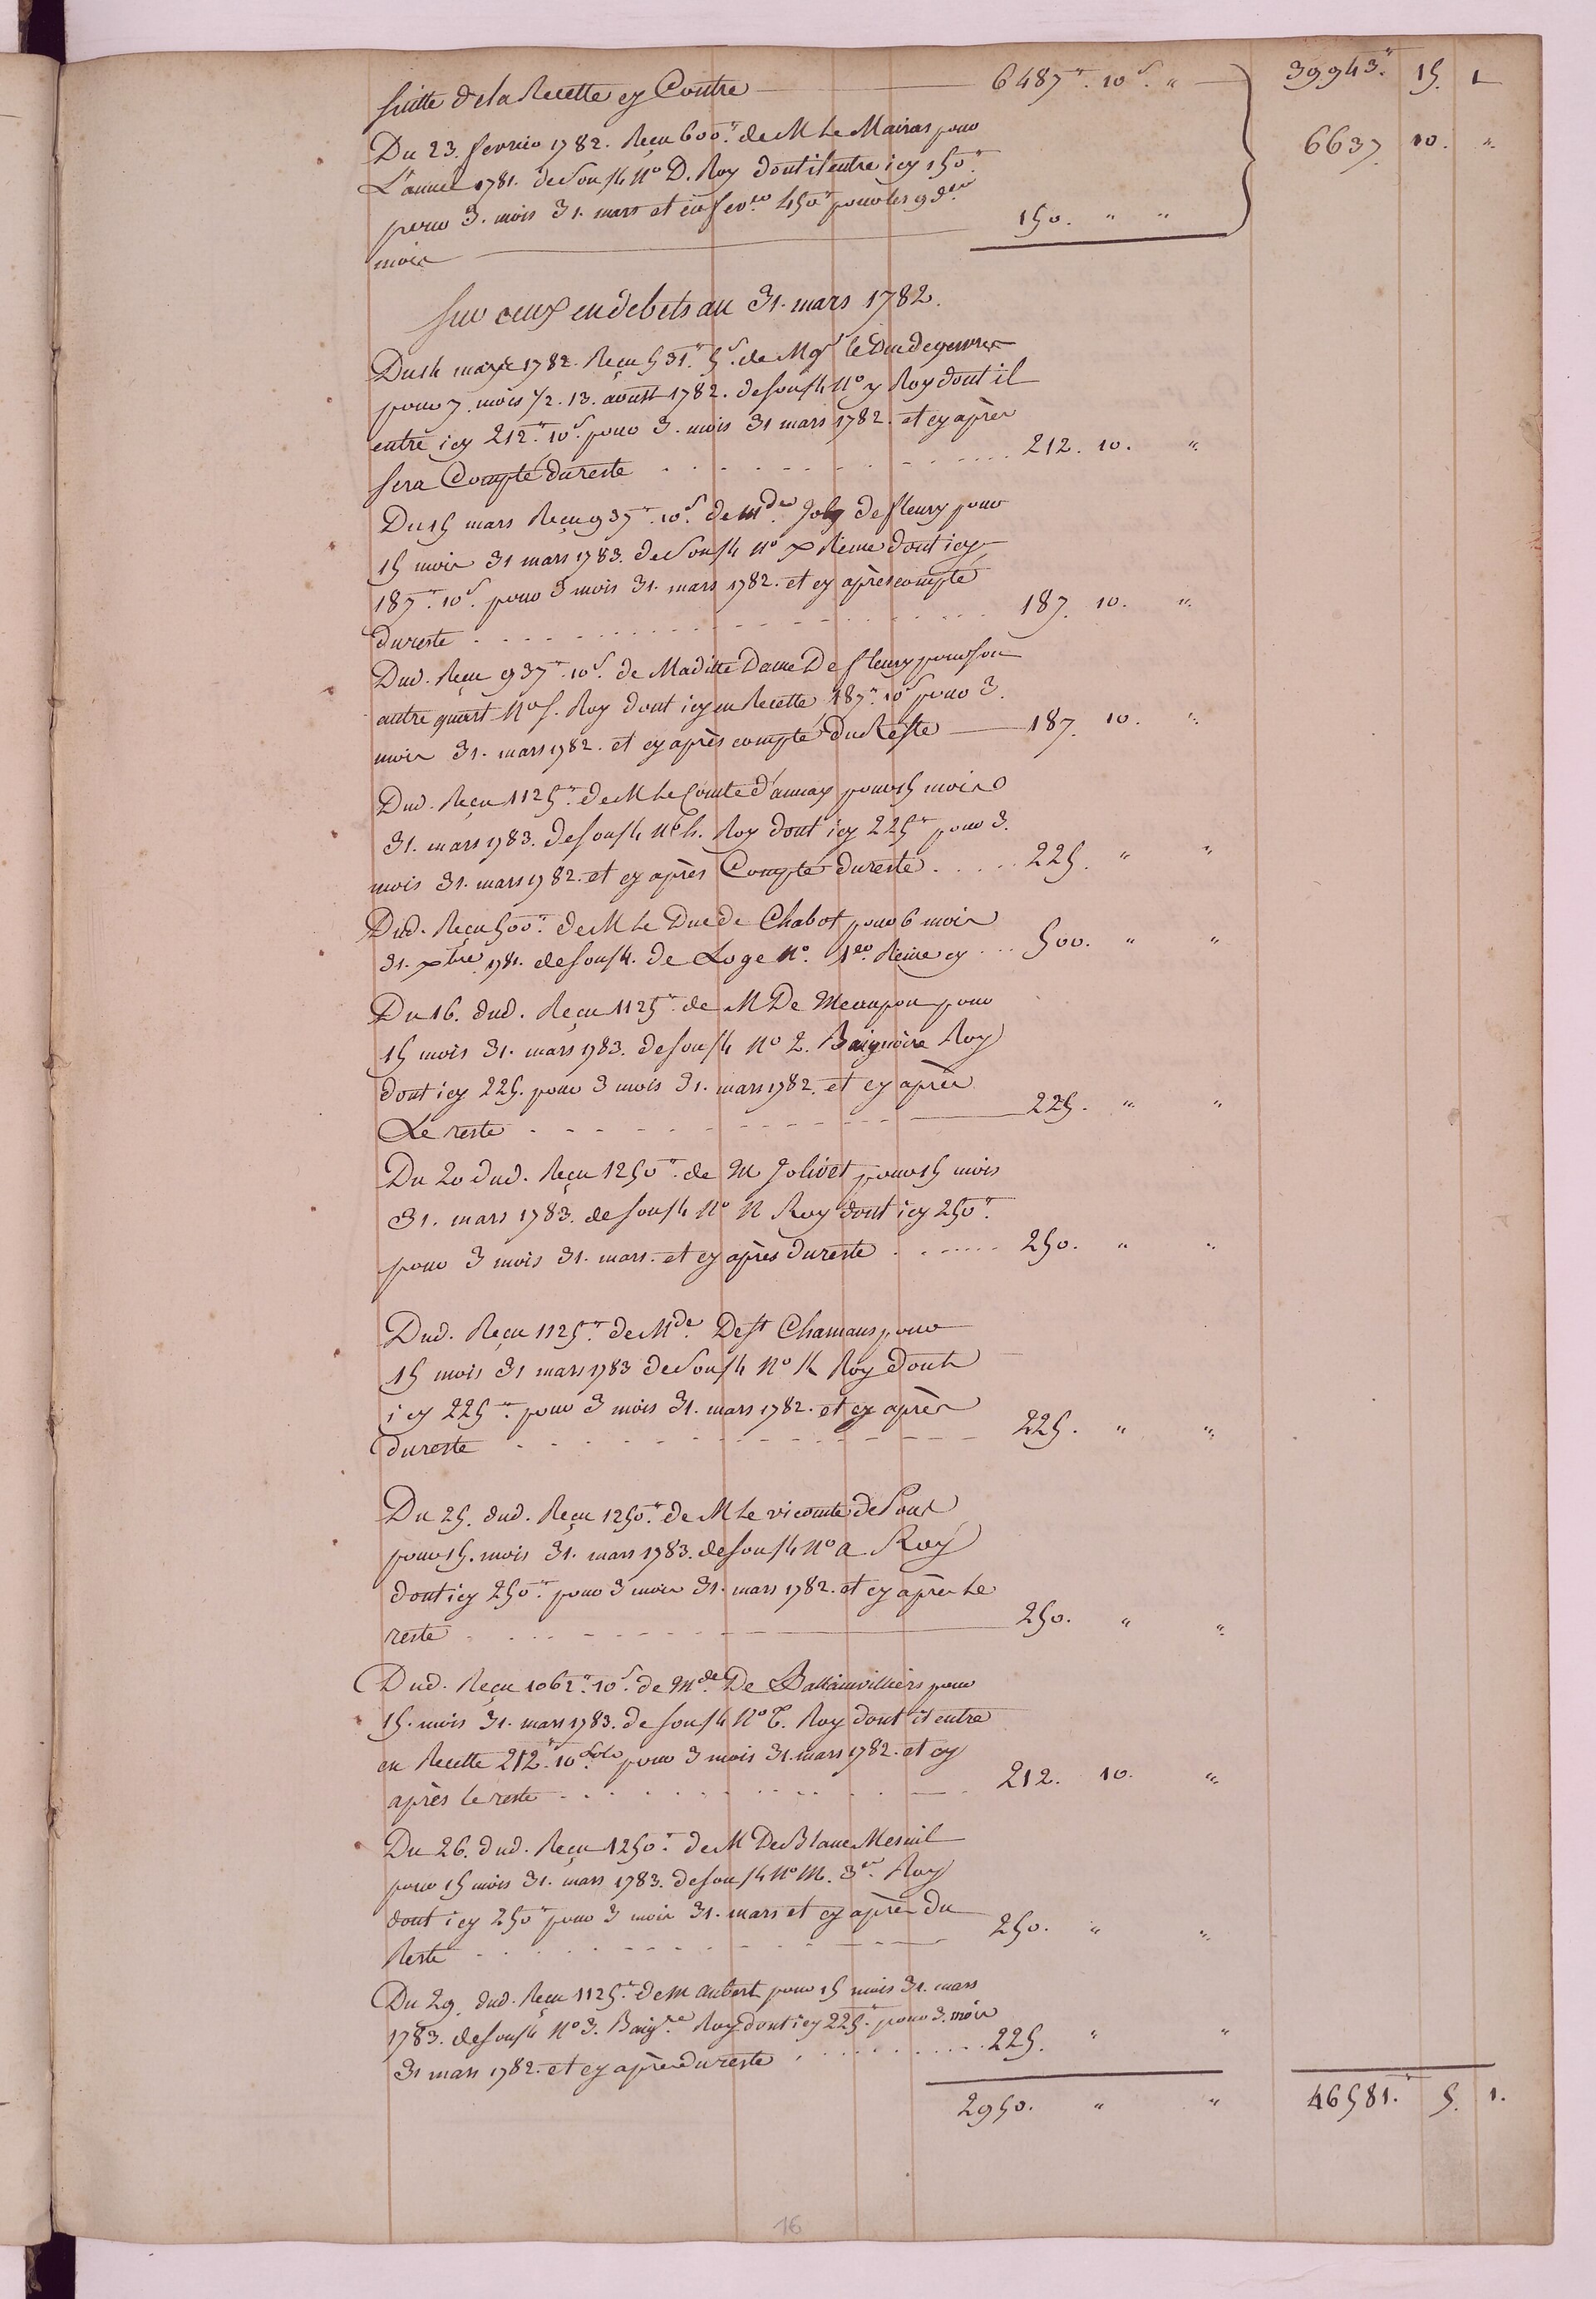 Suitte de la Recette cy Contre 6487.ᵗᵗ 10.ˢ „ 39943.ᵗᵗ 15. 1
Du 23. fevrier 1782. Reçu 600.ᵗᵗ de M Le Mairat pour 6637. 10. „
L'année 1781. de Son ¼ N° D. Roy dont il entre icy 150ᵗᵗ
pour 3. mois 31. mars et 450ᵗᵗ pour les 9 dᵉʳˢ
mois 150. „ „
Sur ceux en debets au 31. mars 1782.
Du 14 mars 1782. Reçu 531.ᵗᵗ 5ˢ. de Mgʳ le Duc de gesvres
pour 7. mois ½. 13. aoust 1782. de son ¼ N° y Roy dont il
entre icy 212.ᵗᵗ 10ˢ. pour 3. mois 31 mars 1782. et cy après
sera Compté du reste 212. 10. „
Du 15 mars Reçu 937ᵗᵗ. 10ˢ. de Mᵈᵉ. Joly de fleury pour
15 mois 31 mars 1783. de Son ¼ N° x Reine dont icy
187.ᵗᵗ 10ˢ. pour 3 mois 31. mars 1782. et cy après compté
du reste 187. 10. „
Dud. Reçu 937ᵗᵗ. 10ˢ. de Maditte Dame De fleury pour son
autre quart N° f. Roy dont icy en Recette 187.ᵗᵗ 10ˢ pour 3.
mois 31. mars 1782. et cy après compté du Reste 187. 10. „
Dud. Reçu 1125.ᵗᵗ de M Le Comte d'aunay pour 15 mois
31. mars 1783. de son ¼ N° h. Roy dont icy 225ᵗᵗ pour 3.
mois 31. mars 1782. et cy après Compté du reste 225. „ „
Dud. Reçu 500.ᵗᵗ de M Le Duc de Chabot pour 6 mois
31. xbre 1781. de son ¼. de Loge N°. 1ᵉʳ. Reine cy 500. „ „
Du 16. dud. Reçu 1125.ᵗᵗ de M De pour
15 mois 31. mars 1783. de son ¼ N° 2. Baignoire Roy
dont icy 225. pour 3 mois 31. mars 1782. et cy après
Le reste 225. „ „
Du 20 dud. Reçu 1250.ᵗᵗ de M Jolivet pour 15 mois
31. mars 1783. de son ¼ N° N Roy dont icy 250.ᵗᵗ
pour 3 mois 31. mars. et cy après du reste 250. „ „
Dud. Reçu 1125.ᵗᵗ de Mᵈᵉ. De St Chamans pour
15 mois 31 mars 1783 de Son ¼ N° K Roy dont
icy 225.ᵗᵗ pour 3 mois 31. mars 1782. et cy après
du reste 225. „ „
Du 25. dud. Reçu 1250.ᵗᵗ de M Le vicomte de Pons
pour 15. mois 31. mars 1783. de son ¼ N° a Roy
dont icy 250.ᵗᵗ pour 3 mois 31. mars 1782. et cy après Le
reste 250. „ „
Dud. Reçu 1062.ᵗᵗ 10ˢ. de Mᵈᵉ De Ballainvilliers pour
15. mois 31. mars 1783. de son ¼ N° T. Roy dont il entre
en Recette 212.ᵗᵗ 10 Sols pour 3 mois 31. mars 1782. et cy
après le reste 212. 10. „
Du 26. dud. Reçu 1250.ᵗᵗ de M De Blanc Mesnil
pour 15 mois 31. mars 1783. de son ¼ N° M. 3ᵉᵐ. Roy
dont icy 250ᵗᵗ pour 3 mois 31. mars et cy après du
Reste 250. „ „
Du 29. dud. Reçu 1125.ᵗᵗ de M aubert pour 15 mois 31. mars
1783. de son ¼ N° 3. Baigʳᵉ Roy dont icy 225.ᵗᵗ pour 3. mois
31 mars 1782. et cy après du reste 225. „ „
2950. „ „ 46581.ᵗᵗ 5. 1.
16